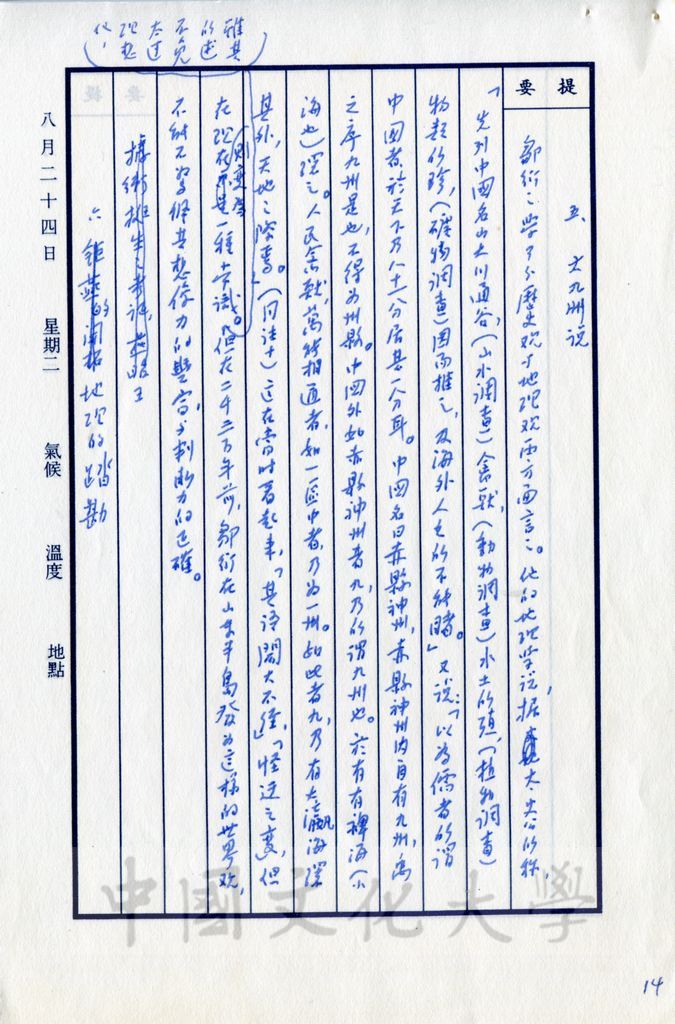 提要
五、大九洲說
鄒衍之學可分歷史观與地理观兩方面言之。他的地理學說,据太史公所称,
「先列中國名山大川通谷,(山水調查)禽獸,(動物調查)水土所殖,(植物調查)
物類所珍,(礦物調查)因而推之,及海外人之所不能睹。」又說:「以為儒者所謂
中國者,於天下乃八十一分居其一分耳。中國名曰赤縣神州,赤縣神州內自有九州,禹
之序九州是也,不得為州縣。中國外如赤縣神州者九,乃所謂九州也。於有有裨海(小
海也)環之。人民禽獸,萬能相通者,如一區中者,乃為一州。如此者九,乃有大瀛海環
其外,天地之際焉。(同註十)這在當時看起來,「其語閎大不經」,「怪迂之變,但
在現在則變為一種常識。但在二千三百年前,鄒衍在山東半島發为這樣的世界观,
雖其所述不免太过理想化,
不能不為佩其想像力的豐富,與判断力的正確。
據衛挺生考証,燕昭王
六、鉅燕的開拓地理的踏勘
八月二十四日 星期二 氣候 溫度 地點
中國文化大學
14